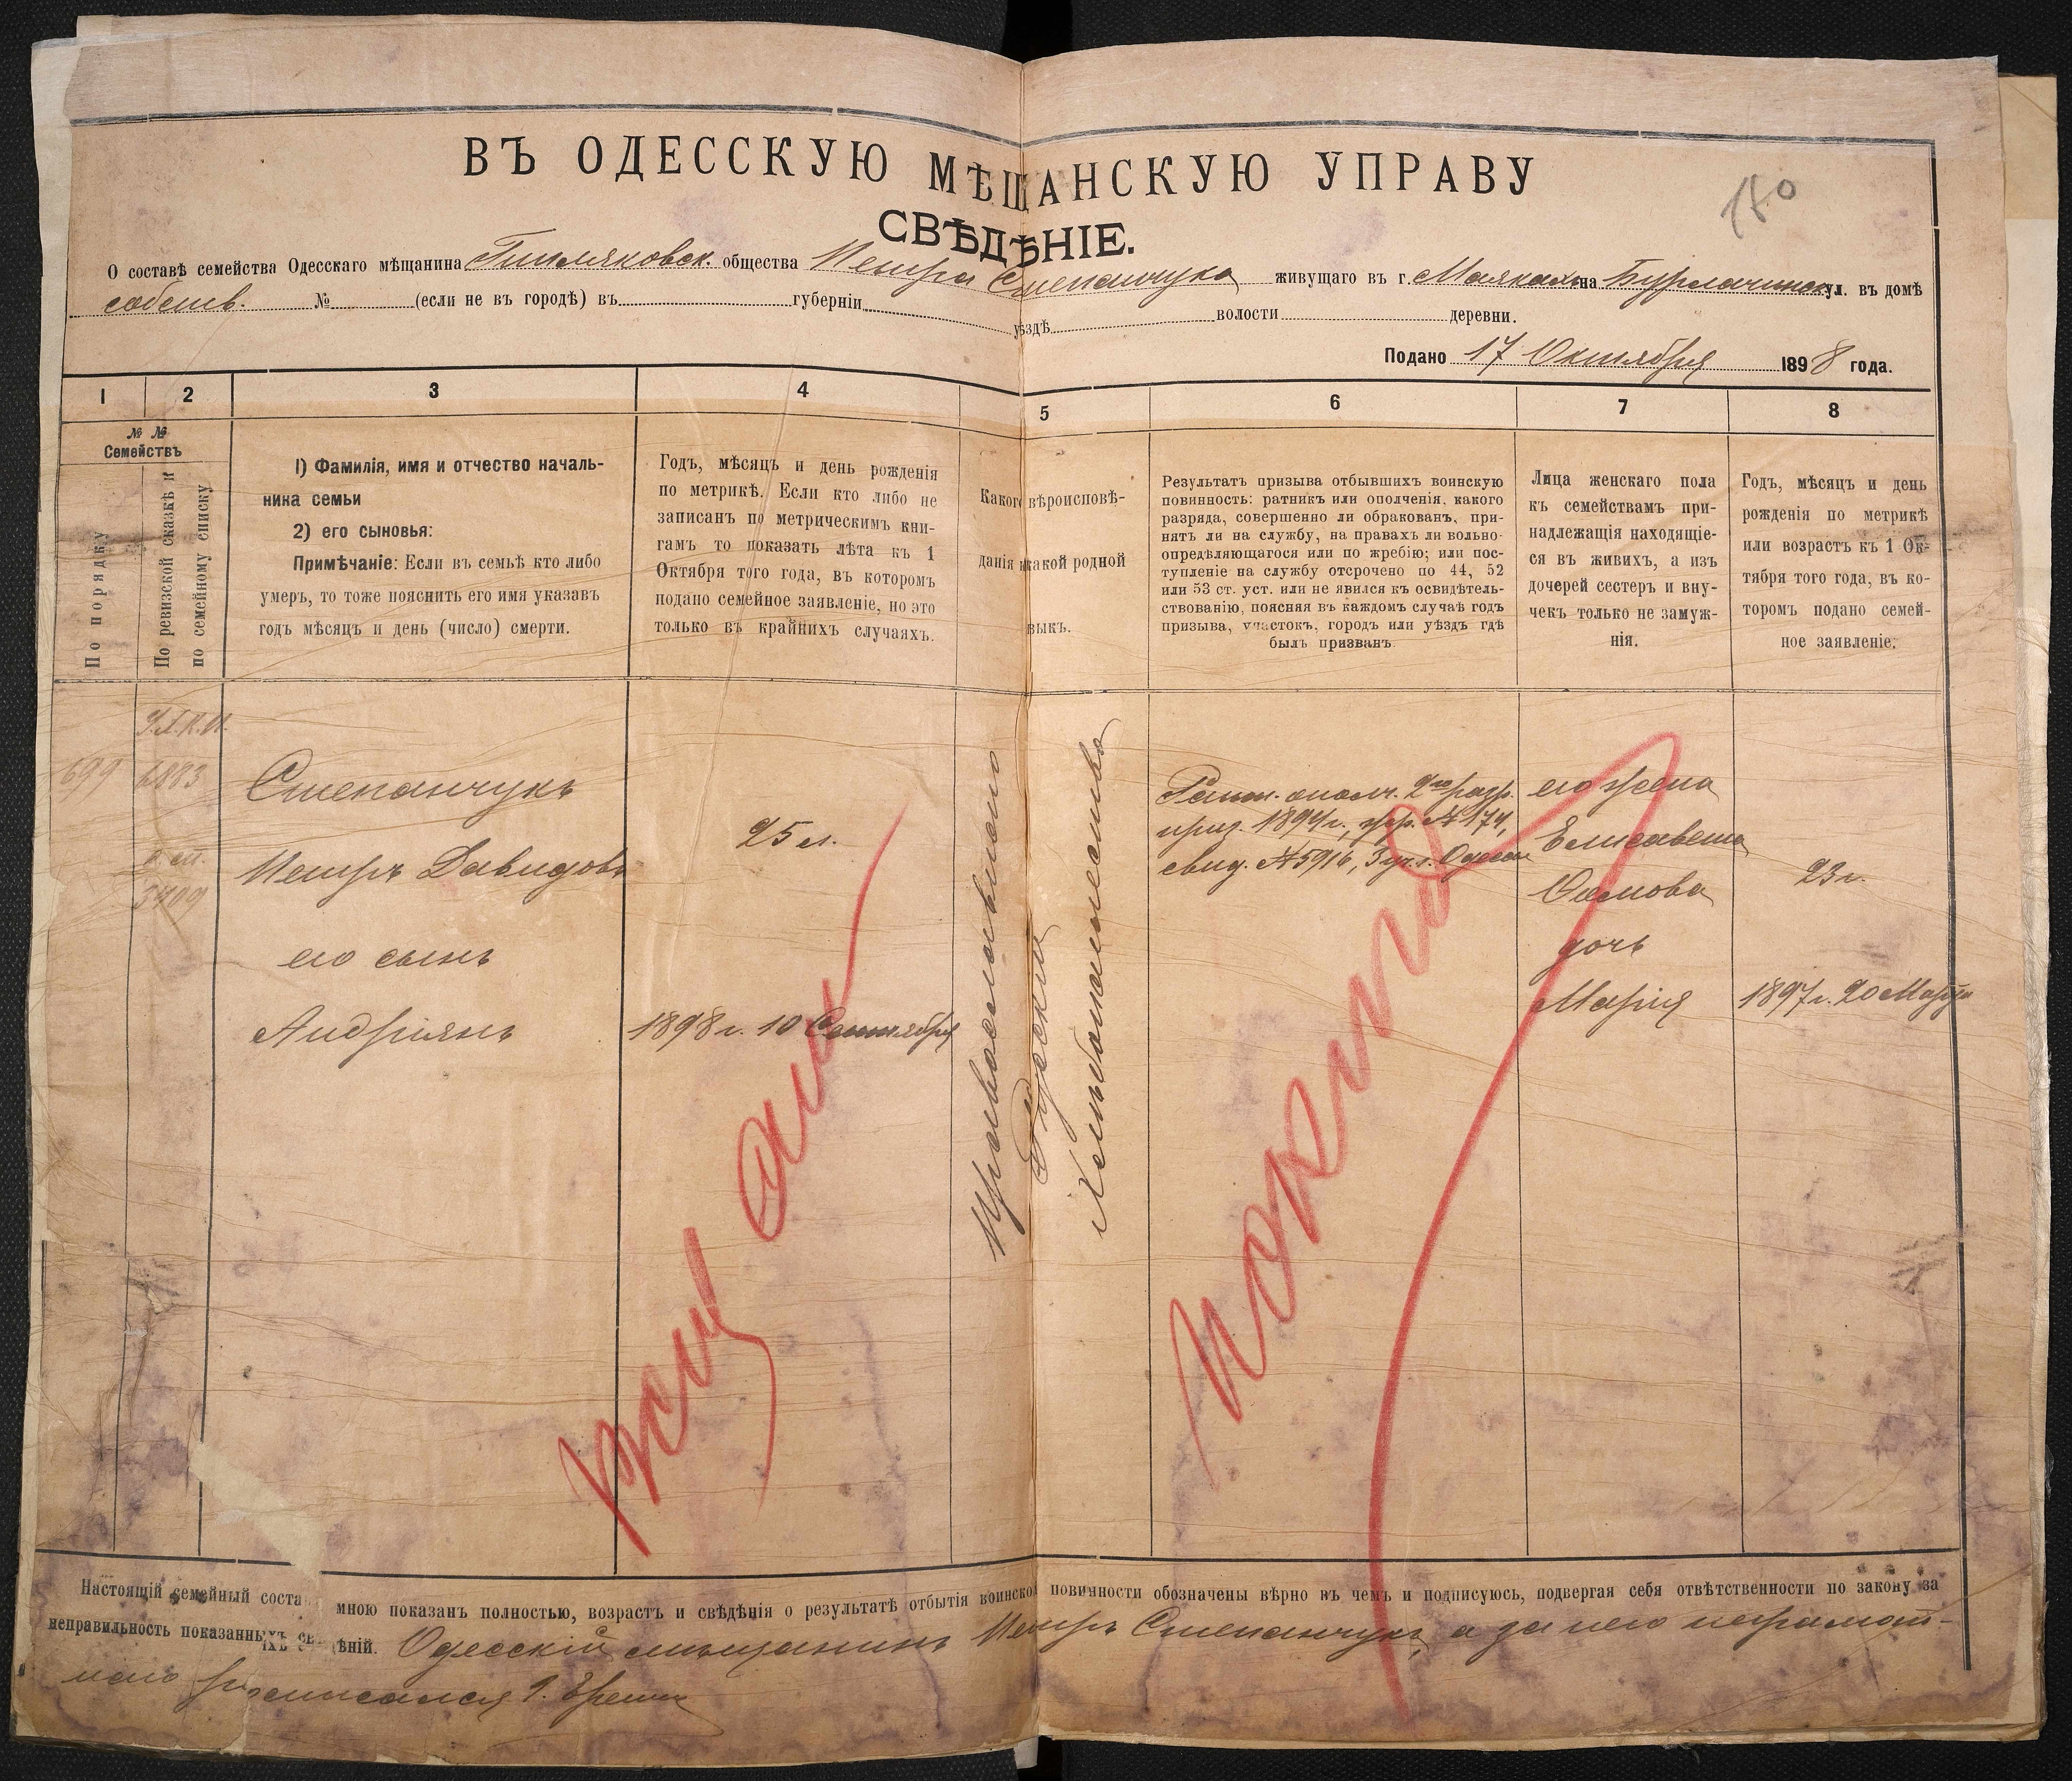 ВЪ ОДЕССКУЮ МѢЩАНСКУЮ УПРАВУ
СВѢДѢНІЕ.
О составѣ семейства Одесскаго мѣщанина Гниляковск. общества Петра Степанчука живущаго въ г. Маякахъ на ул. въ домѣ
собств. № (если не въ городѣ) въ губерніи уѣздѣ волости деревни.
Подано 17 Октября 1898 года.
1 2 3 4 5 6 7 8
№ №
Семействъ
По порядку
По ревизской сказкѣ и
по семейному списку
1) Фамилія, имя и отчество началь-
ника семьи
2) его сыновья:
Примѣчаніе: Если въ семьѣ кто либо
умеръ, то тоже пояснить его имя указавъ
годъ мѣсяцъ и день (число) смерти.
Годъ, мѣсяцъ и день рожденія
по метрикѣ. Если кто либо не
записанъ по метрическимъ кни-
гамъ то показать лѣта къ 1
Октября того года, въ которомъ
подано семейное заявленіе, но это
только въ крайнихъ случаяхъ.
Какого вѣроисповѣ-
данія и какой родной
языкъ.
Результатъ призыва отбывшихъ воинскую
повинность: ратникъ или ополченія, какого
разряда, совершенно ли обракованъ, при-
нятъ ли на службу, на правахъ ли вольно-
опредѣляющагося или по жребію; или пос-
тупленіе на службу отсрочено по 44, 52
или 53 ст. уст. или не явился къ освидѣтель-
ствованію, поясняя въ каждомъ случаѣ годъ
призыва, участокъ, городъ или уѣздъ гдѣ
былъ призванъ.
Лица женскаго пола
къ семействамъ при-
надлежащія находящіе-
ся въ живихъ, а изъ
дочерей сестеръ и вну-
чекъ только не замуж-
нія.
Годъ, мѣсяцъ и день
рожденія по метрикѣ
или возрастъ къ 1 Ок-
тября того года, въ ко-
торомъ подано семей-
ное заявленіе.
699
6883
3409
Степанчукъ
Петръ Давидовъ
его сынъ
Андріянъ
25 л.
1898 г. 10 Сентября
Православнаго
Русскій
Ратн. ополч. 2го разр.
приз. 1894 г., жр. № 174,
свид. № 5916, 3 уч. г. Одессы
его жена
Елисавета
дочь
Марія
23 г.
1897 г. 20 Марта
Настоящій семейный соста мною показанъ полностью, возрастъ и свѣдѣнія о результатѣ отбытія воинской повинности обозначены вѣрно въ чемъ и подписуюсь, подвергая себя отвѣтственности по закону за
неправильность показанныхъ свѣдѣній. Одесскій мѣщанинъ Петръ Степанчукъ, а за него неграмот-
наго росписался